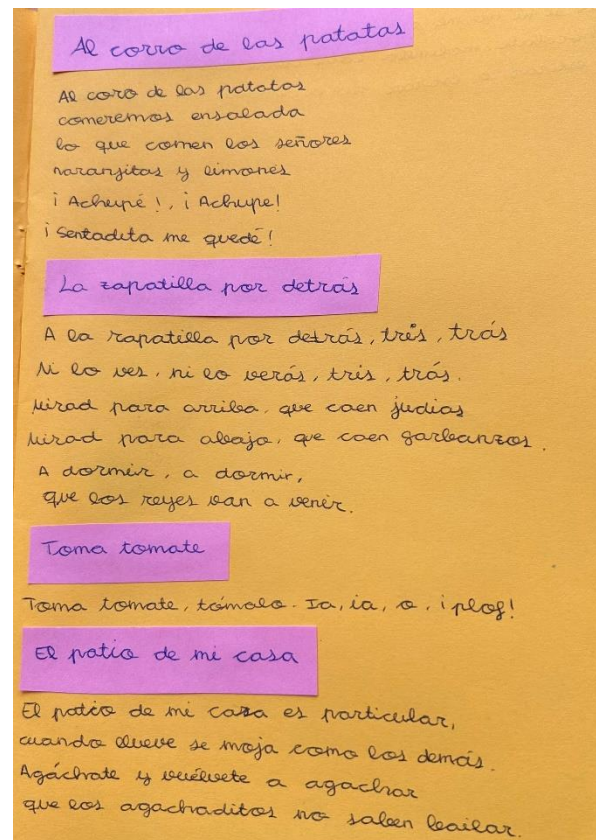 Al corro de las patatas
Al coro de las patatas
comeremos ensalada
lo que comen los señores
naranjitas y limones
¡Achupé!, ¡Achupe!
¡Sentadita me quedé!
La zapatilla por detrás
A la zapatilla por detrás, trés, trás
Ni lo ves, ni lo verás, tris, trás.
Mirad para arriba, que caen judias
Mirad para abajo, que caen garbanzos.
A dormir, a dormir,
que los reyes van a venir.
Toma tomate
Toma tomate, tómalo. Ia, ia, o, ¡plof!
El patio de mi casa
El patio de mi casa es particular,
cuando llueve se moja como los demás.
Agáchate y vuélvete a agachar
que los agachaditos no saben bailar.